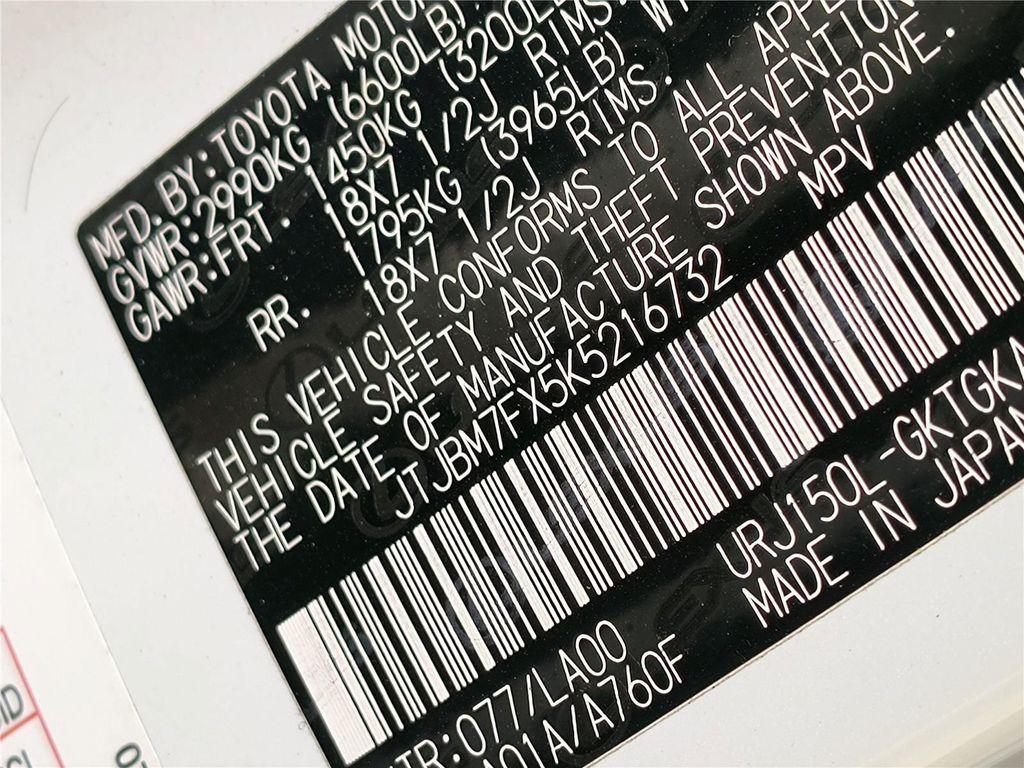 MFD. BY: TOYOTA MOTO
GVWR: 2990KG (6600LB)
GAWR: FRT. 1450KG (3200L
18X7 1/2J RIMS
RR. 1795KG (3965LB) W
18X7 1/2J RIMS.
THIS VEHICLE CONFORMS TO ALL APPL
VEHICLE SAFETY AND THEFT PREVENTION
THE DATE OF MANUFACTURE SHOWN ABOVE.
JTJBM7FX5K5216732 MPV
URJ150L-GKTGKA
TR: 077/LA00 MADE IN JAPAN
A01A/A760F
ID